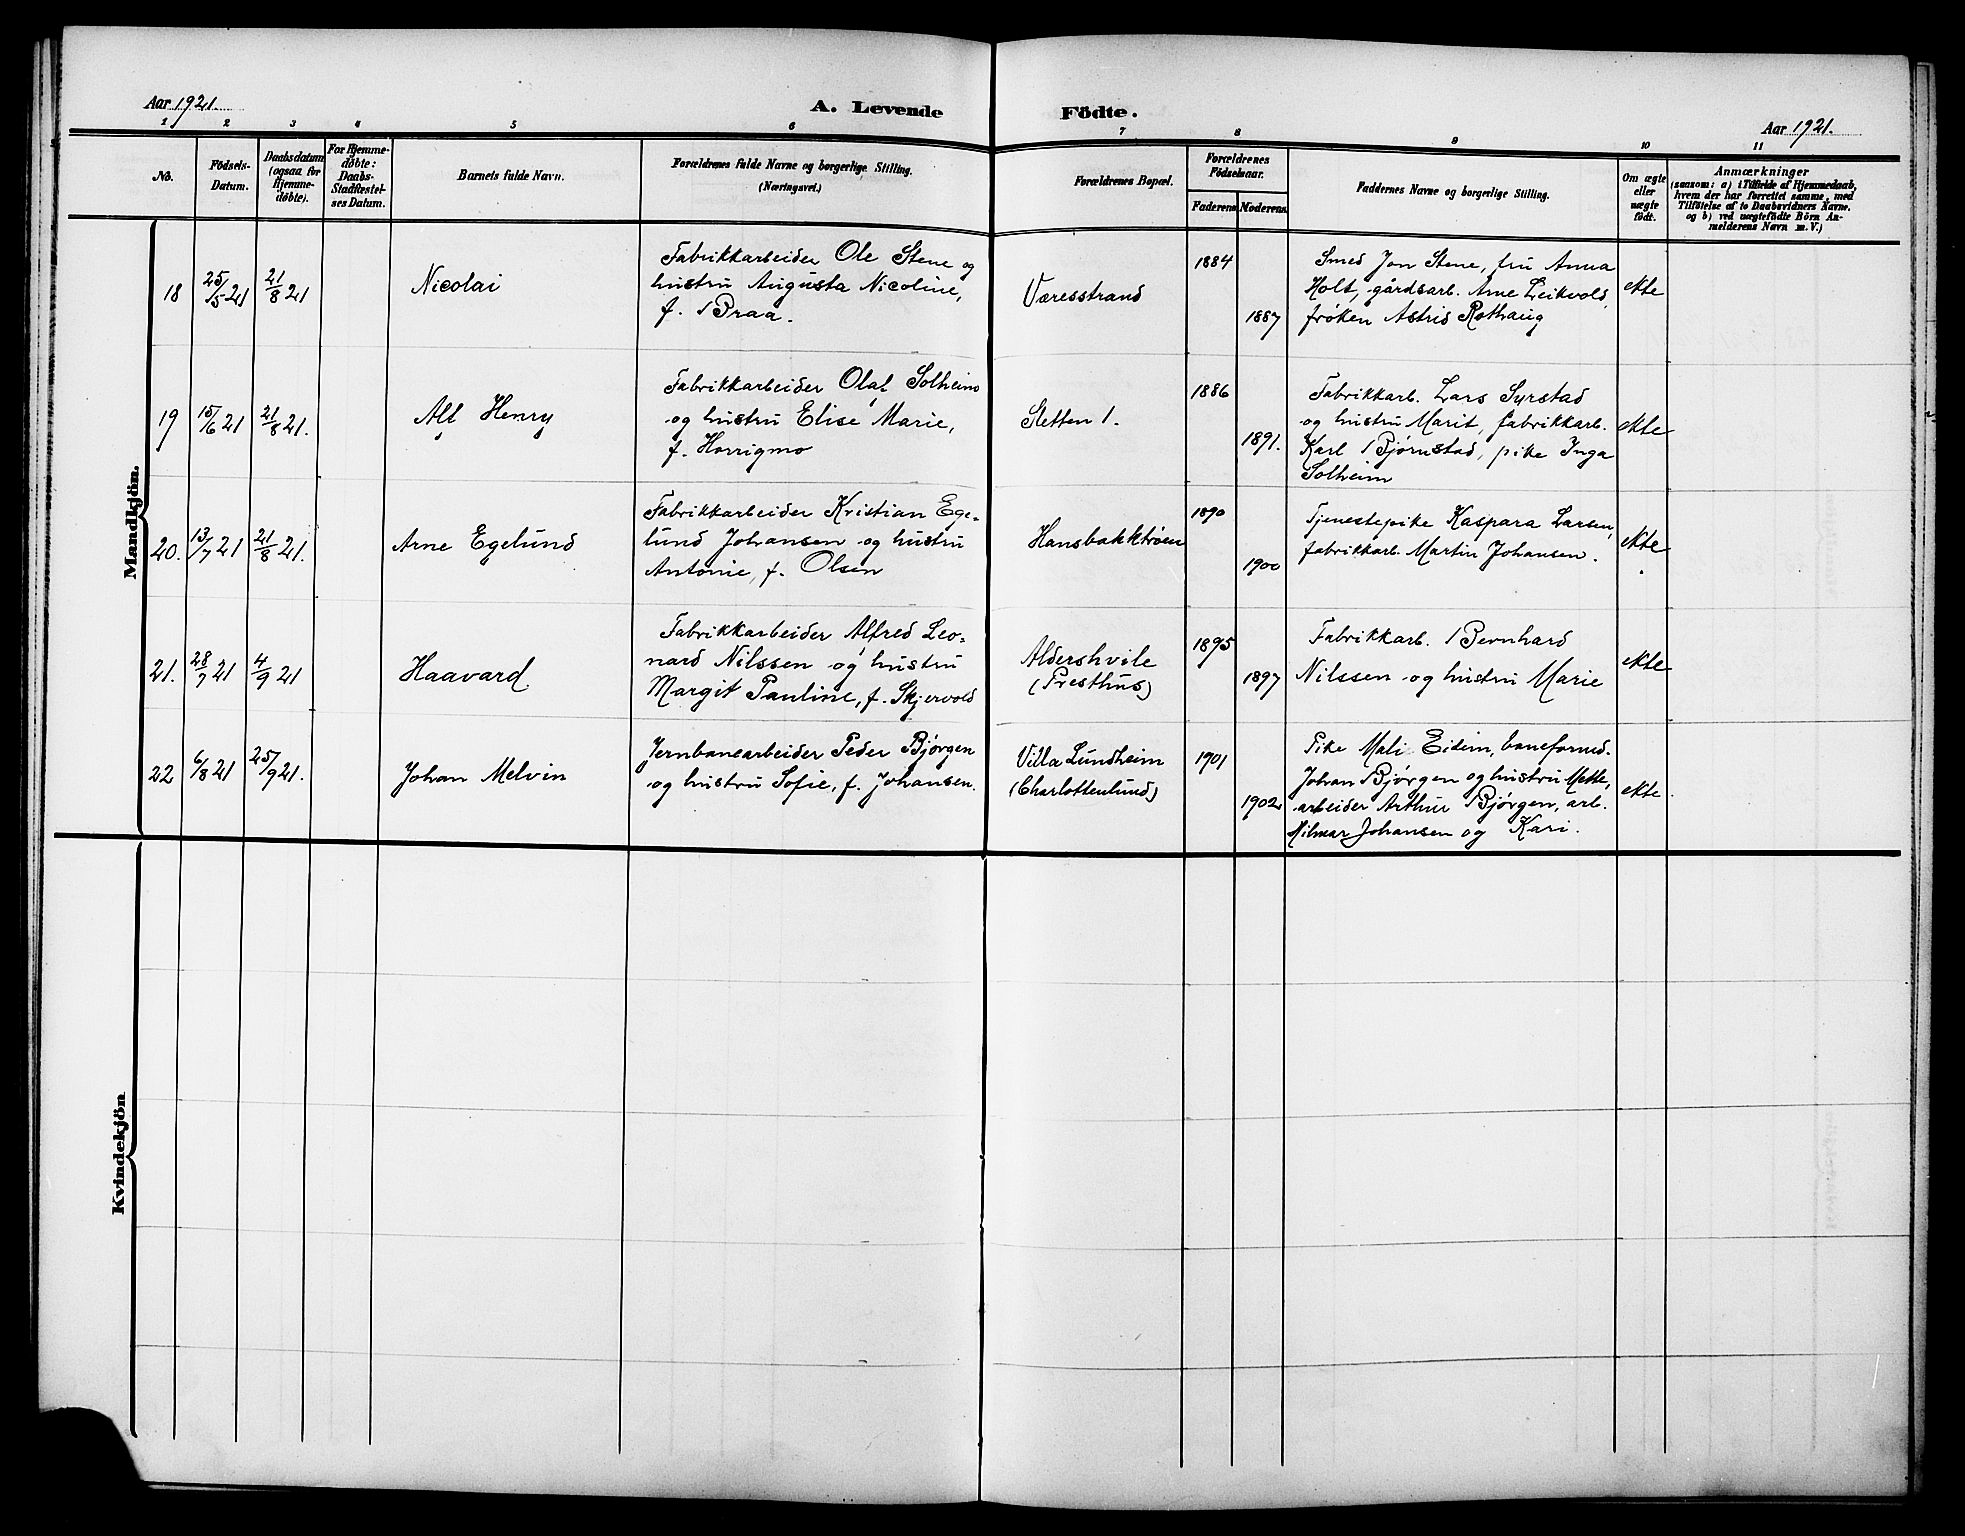 Aar 1921.
A. Levende Födte.
Aar 1921.
1 2 3 4 5 6 7 8 9 10 11
No.
Födsels-
Datum.
Daabsdatum
(ogsaa for
Hjemme-
döbte).
For Hjemme-
døbte:
Daabs-
Stadfæstel-
ses Datum.
Barnets fulde Navn.
Forældrenes fulde Navne og borgerlige Stilling.
(Næringsvei.)
Forældrenes Bopæl.
Forældrenes
Födselsaar.
Faderens
Moderens
Faddernes Navne og borgerlige Stilling.
Om ægte
eller
uægte
födt.
Anmærkninger
(saasom: a) i Tilfælde af Hjemmedaab,
hvem der har forrettet samme, med
Tilföielse af to Daabsvidners Navne.
og b) ved uægtefödte Börn An-
melderens Navn m. V.)
Mandkjön.
18
25/5 21
21/8 21
Nicolai
Fabrikkarbeider Ole Stene og
hustru Augusta Nicoline,
f. Braa.
Væresstrand
1884
1887
Smed Jon Stene, fru Anna
Holt, gårdsarb. Arne Leikvold,
frøken Astrid Rothaug
ekte
19
15/6 21
21/8 21.
Alf Henry
Fabrikkarbeider Olaf Solheim
og hustru Elise Marie,
f. Horrigmo
Sletten 1.
1886
1891.
Fabrikkarb. Lars Syrstad
og hustru Marit, fabrikkarb.
Karl Bjørnstad, pike Inga
Solheim
ekte
20.
13/7 21
21/8 21.
Arne Egelund
Fabrikkarbeider Kristian Ege-
lund Johansen og hustru
Antonie, f. Olsen
Hansbakktrøen
1890
1900
Tjenestepike Kaspara Larsen,
fabrikkarb. Martin Johansen.
ekte
21.
28/7 21
4/9 21
Haavard.
Fabrikkarbeider Alfred Leo-
nard Nilssen og hustru
Margit Pauline, f. Skjervold
Aldershvile
(Presthus)
1895
1897
Fabrikkarb. Bernhard
Nilssen og hustru Marie
ekte
22
6/8 21
25/9 21.
Johan Melvin
Jernbanearbeider Peder Bjørgen
og hustru Sofie, f. Johansen.
Villa Lundheim
(Charlottenlund)
1901
1902
Pike Mali Eidem, baneformd.
Johan Bjørgen og hustru Mette,
arbeider Arthur Bjørgen, arb.
Hilmar Johansen og Kari.
ekte
Kvindekjön